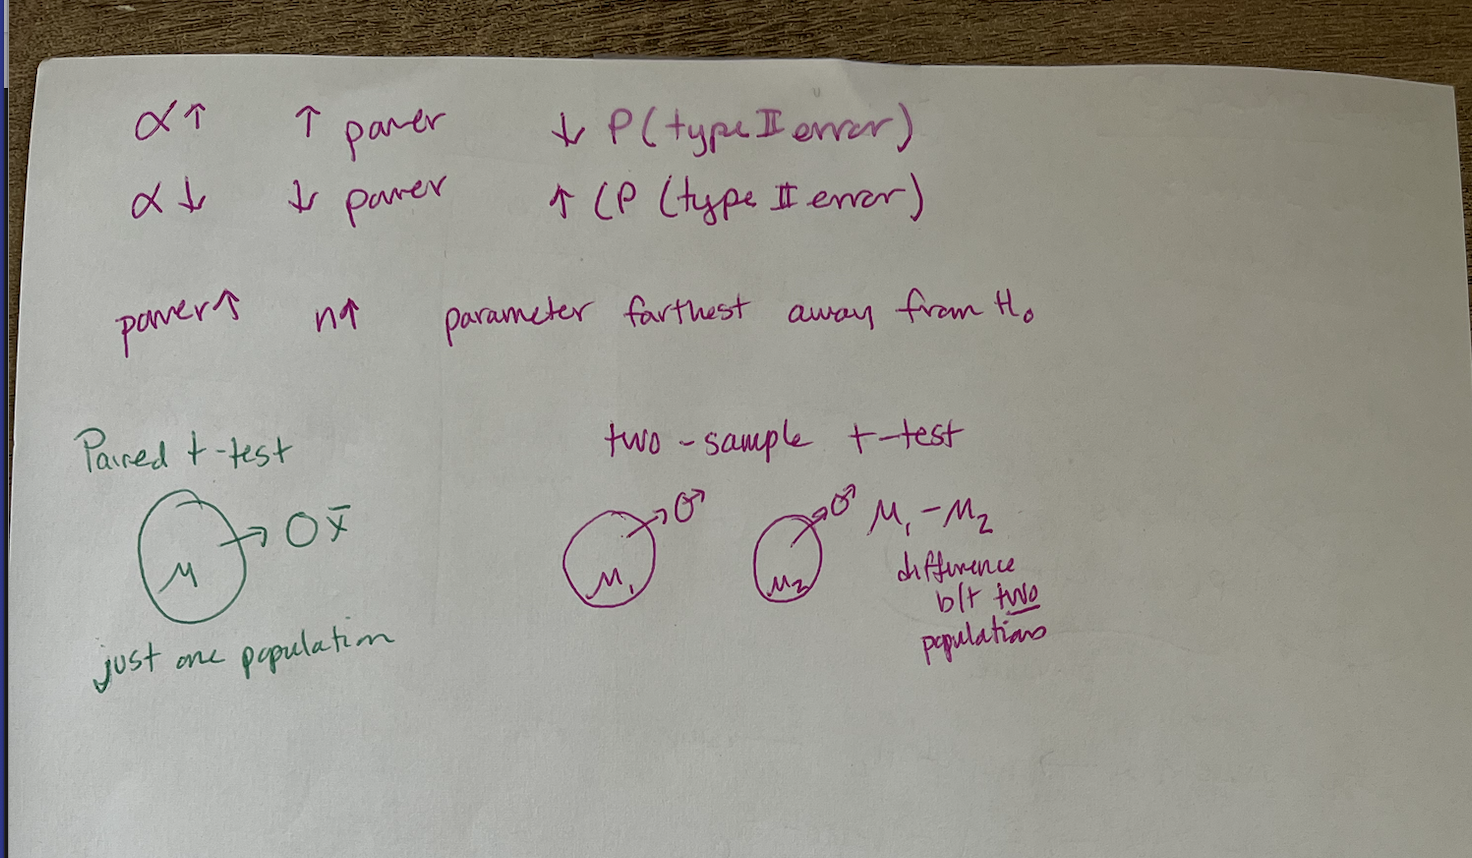 α↑ ↑ power ↓ P(type II error)
α↓ ↓ power ↑ (P (type II error)
power↑ n↑ parameter farthest away from H₀
Paired t-test
μ → x̄
just one population
two-sample t-test
μ₁ → μ₂ → μ₁-μ₂
difference
b/t two
populations